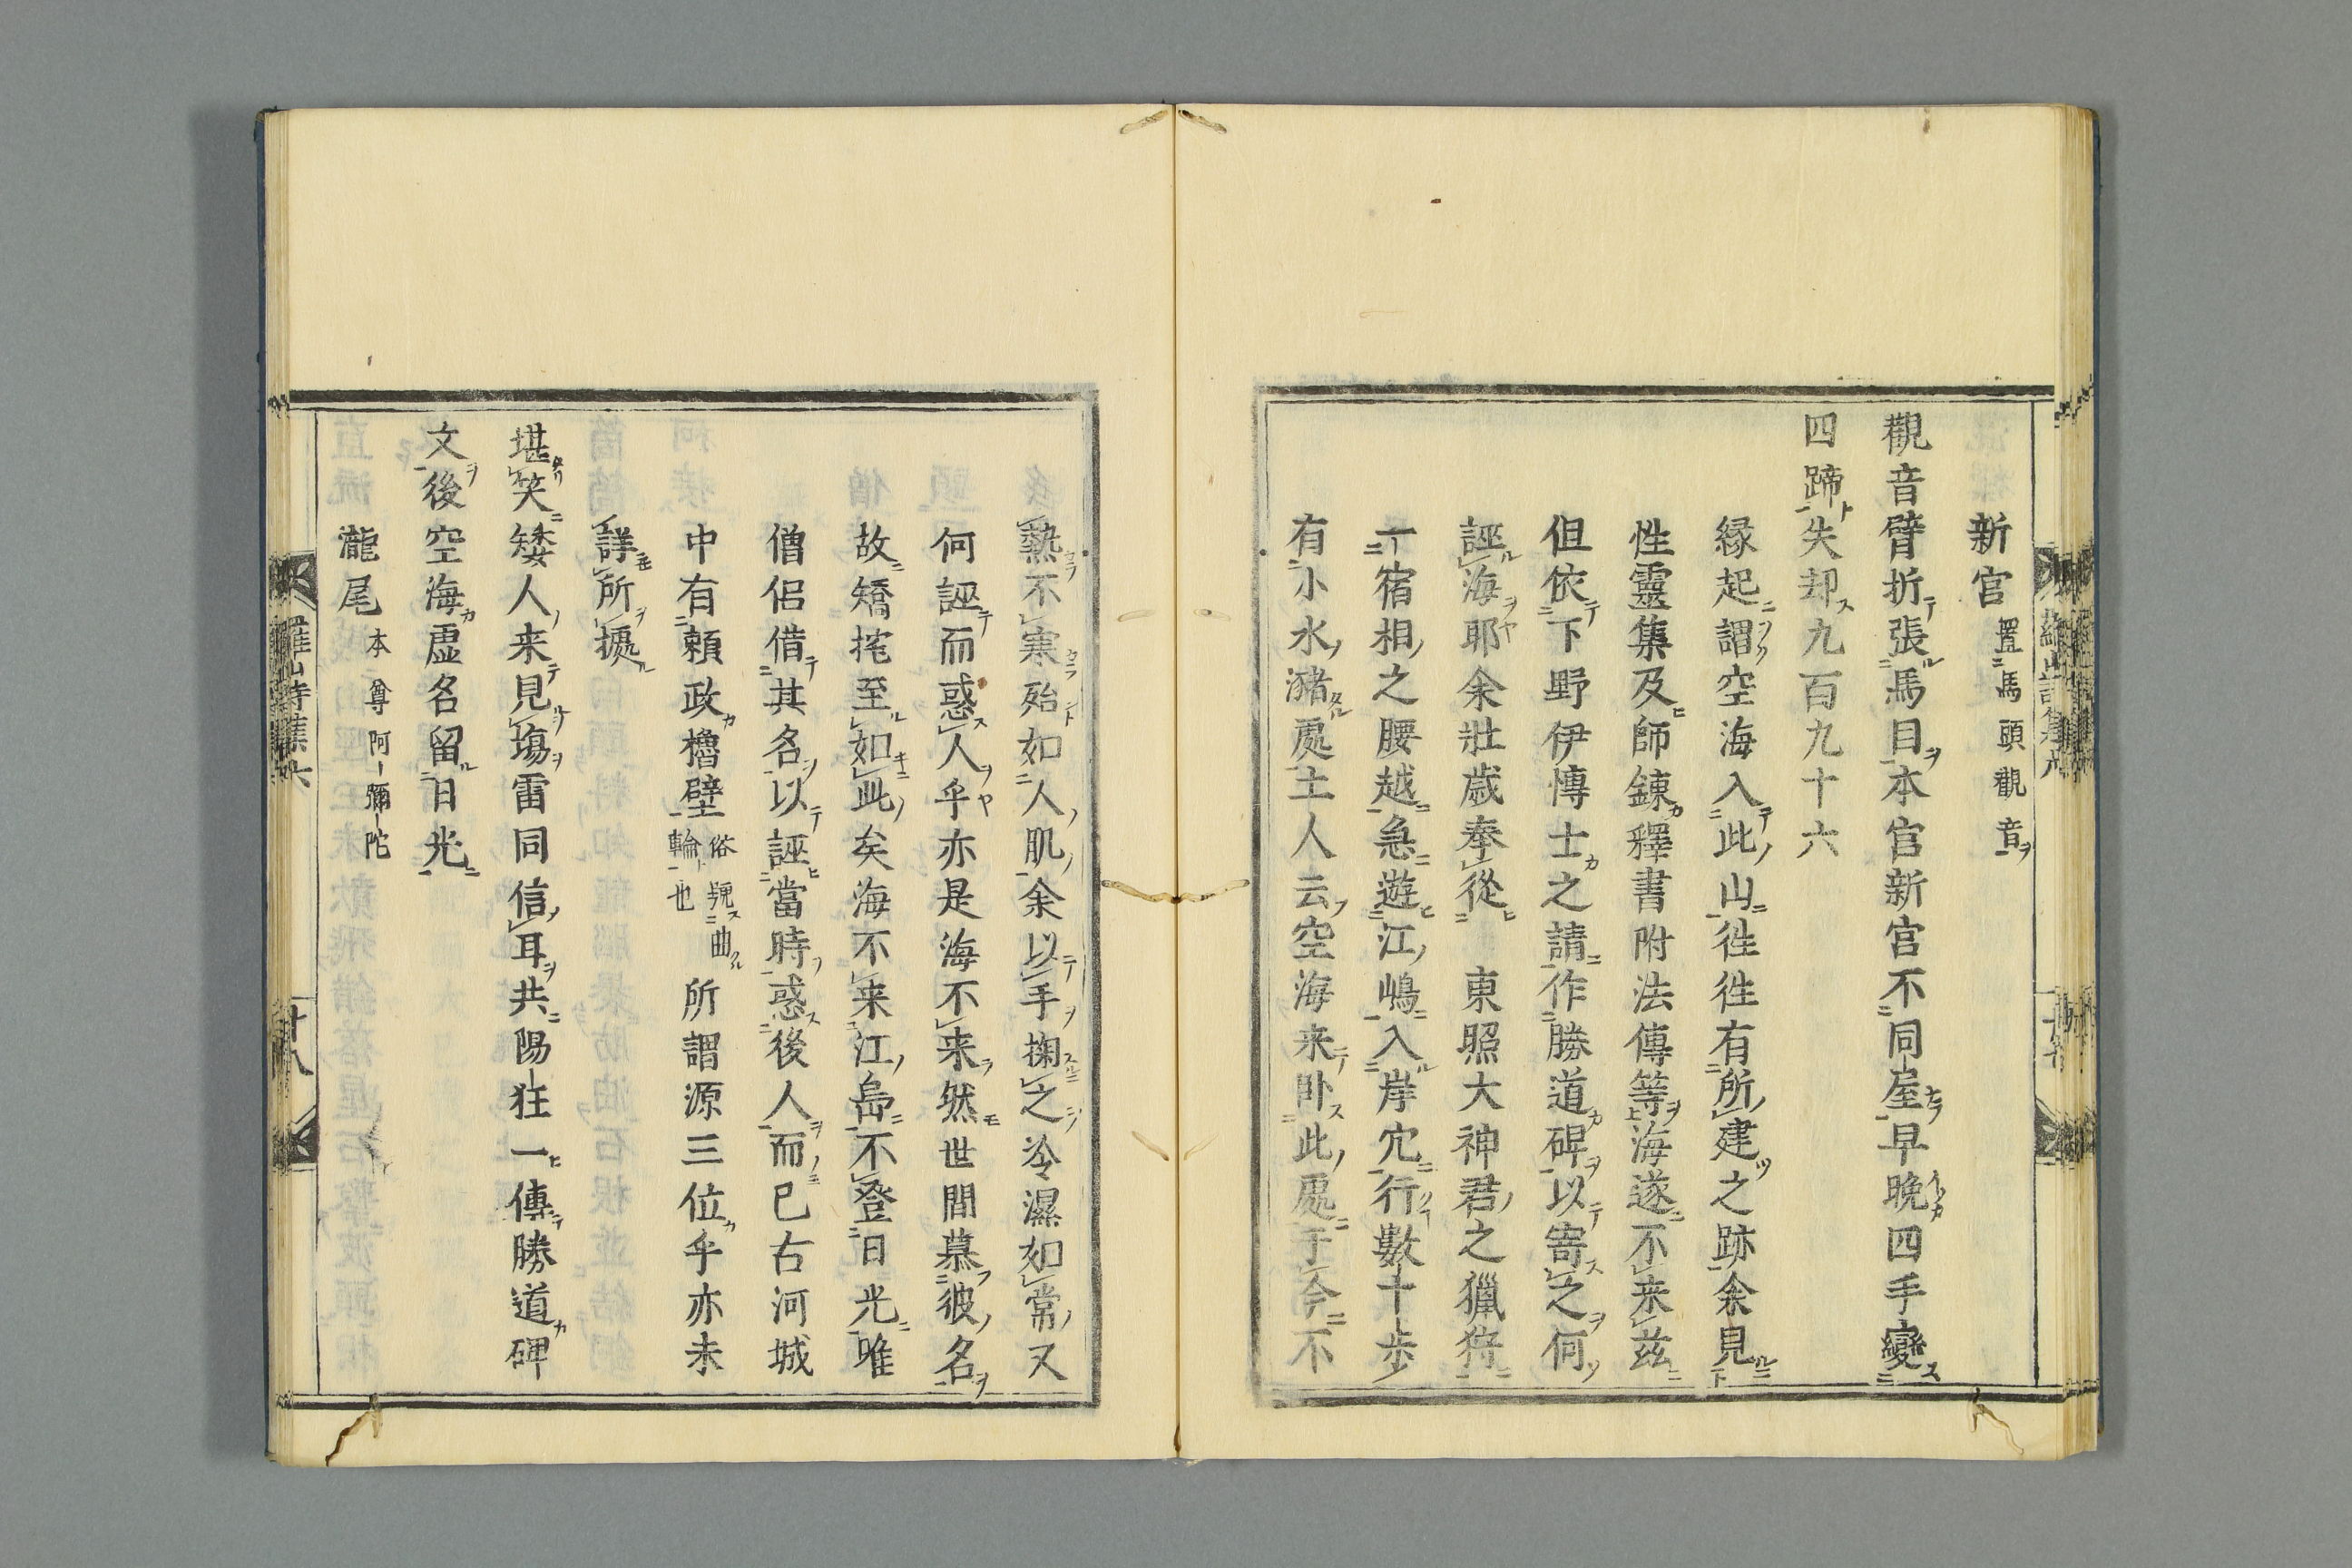 新宮 置馬頭觀音
觀音臂折張馬目本宮新宮不同屋早晩四手變
四蹄失却九百九十六
縁起謂空海入此山徃徃有所建之跡余見
性靈集及師錬釋書附法傳等海遂不来兹
但依下野伊博士之請作勝道碑以寄之何
誣海耶余壯歳奉從 東照大神君之獵狩
一宿相之腰越急遊江嶋入岸穴行數十歩
有小水瀦處土人云空海来卧此處于今不
熱不寒殆如人肌余以手掬之冷濕如常又
何誣而惑人乎亦是海不来然世間慕彼名
故矯㧌至如此矣海不来江島不登日光唯
僧侶借其名以誣當時惑後人而已右河城
中有頼政櫓壁 俗號曲輪也 所謂源三位乎亦未
詳所據
堪笑矮人来見塲雷同信耳共陽狂一傳勝道碑
文後空海虚名留日光
瀧尾 本尊阿彌陀
羅山詩集六
十八